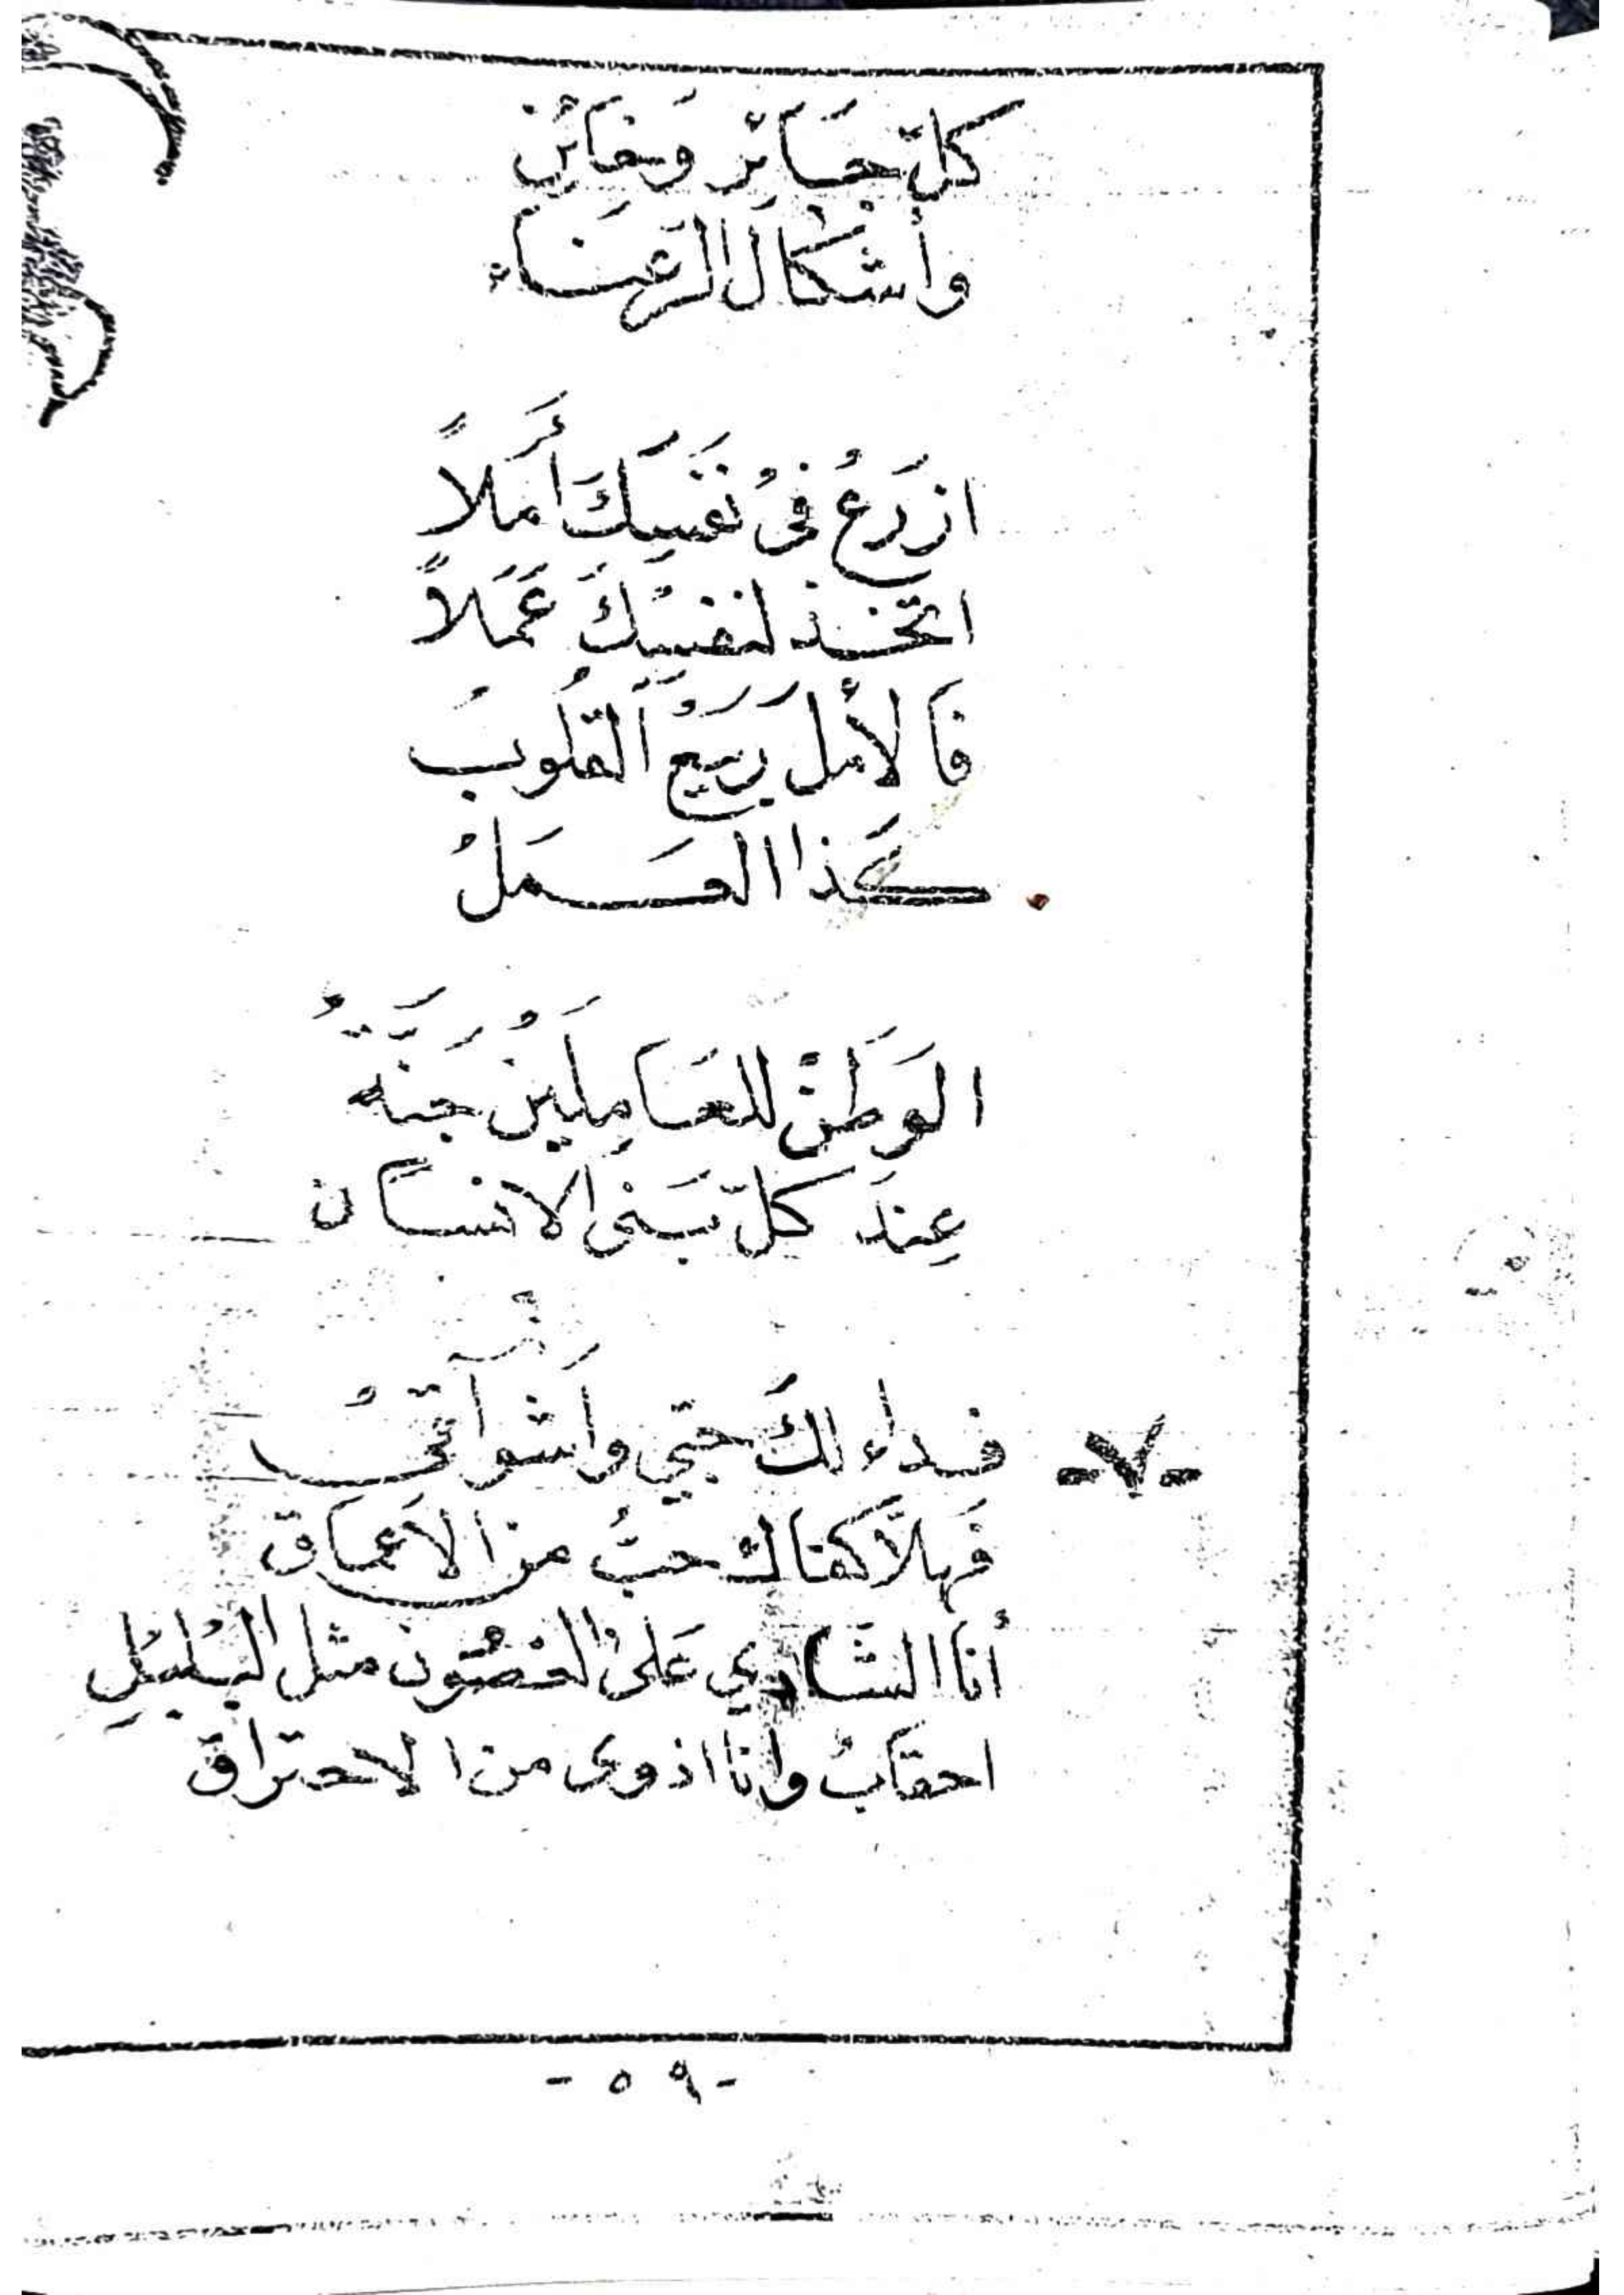 كلّ جَائِر وَخَائِن
وأَشْكَالَ الرّعَناء
ازرَعُ فىُ نَفسِكَ أَمَلاً
اتخذ لنفسِكَ عَمَلاً
فَالأمل رَبيعُ القلُوبُ
كَذا العَمَلُ
الوَطَنْ للعَامِلَينُ جَنَّةُ
عِندَ كلّ بَنى الانسَان
-٧- فداء لكَ حبّي وأشوآقىُ
فَهلاَّ كفاك حبُّ من الاَعماق
أنا الشَادي عَلىُ الغصُون مثل البُلبُلِ
احقابُ وانا اذوى من الاحتراق
- ٥٩ -